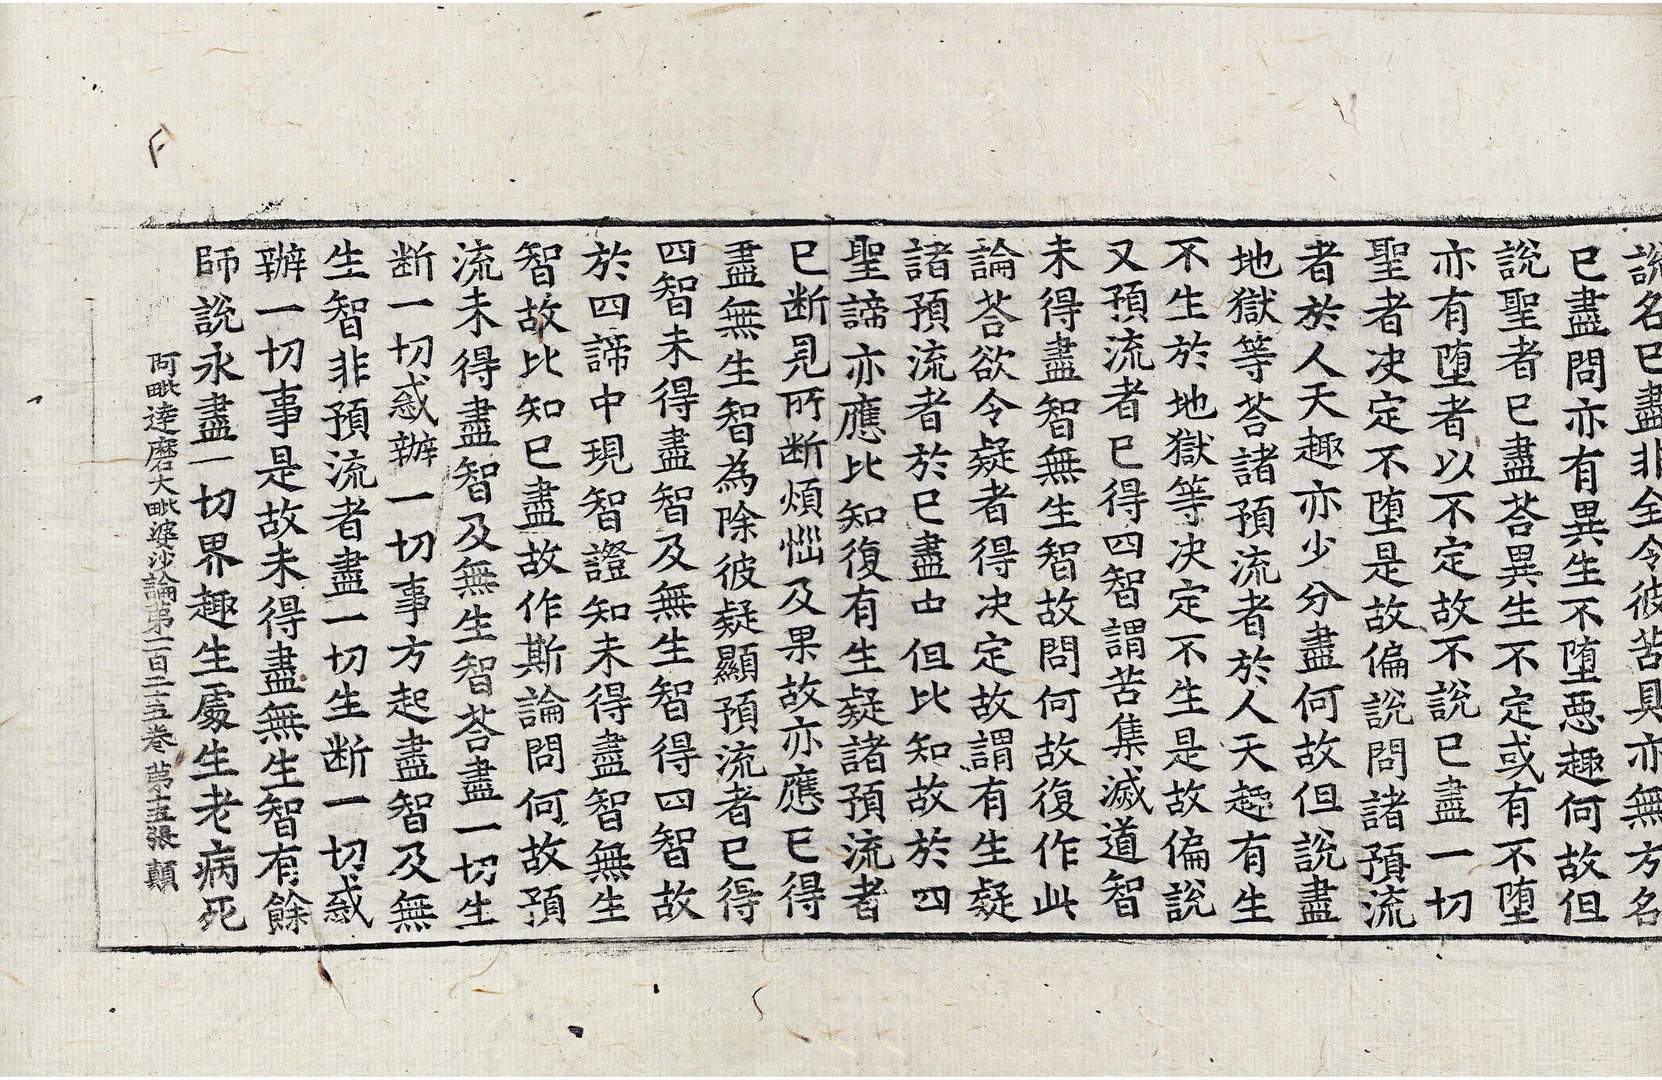 說名已盡非全令彼苦具亦無方名
已盡問亦有異生不墮惡趣何故但
說聖者已盡荅異生不定或有不墮
亦有墮者以不定故不說已盡一切
聖者决定不墮是故偏說問諸預流
者於人天趣亦少分盡何故但說盡
地獄等荅諸預流者於人天趣有生
不生於地獄等决定不生是故偏說
又預流者已得四智謂苦集滅道智
未得盡智無生智故問何故復作此
論荅欲令疑者得决定故謂有生疑
諸預流者於已盡中但比知故於四
聖諦亦應比知復有生疑諸預流者
已断見所断煩惱及果故亦應已得
盡無生智為除彼疑顯預流者已得
四智未得盡智及無生智得四智故
於四諦中現智證知未得盡智無生
智故比知已盡故作斯論問何故預
流未得盡智及無生智荅盡一切生
断一切惑辦一切事方起盡智及無
生智非預流者盡一切生断一切惑
辦一切事是故未得盡無生智有餘
師說永盡一切界趣生處生老病死
阿毗達磨大毗婆沙論第一百二十五卷 第十五張 顛